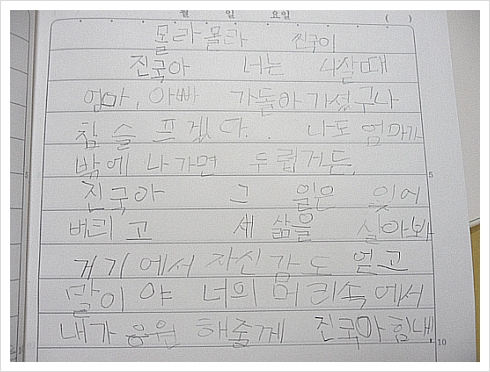 월 일 요일 ( )
몰라몰라 찐국이
진국아 너는 4살때
엄마, 아빠 가돌아가셨구나
참 슬프겠다. 나도 엄마가
밖에 나가면 두렵거든,
진국아 그 일은 잊어
버리고 새 삶을 살아봐
거기에서 자신감도 얻고
말이야 너의 머리속에서
내가 응원 해줄께 진국아 힘내
5
10